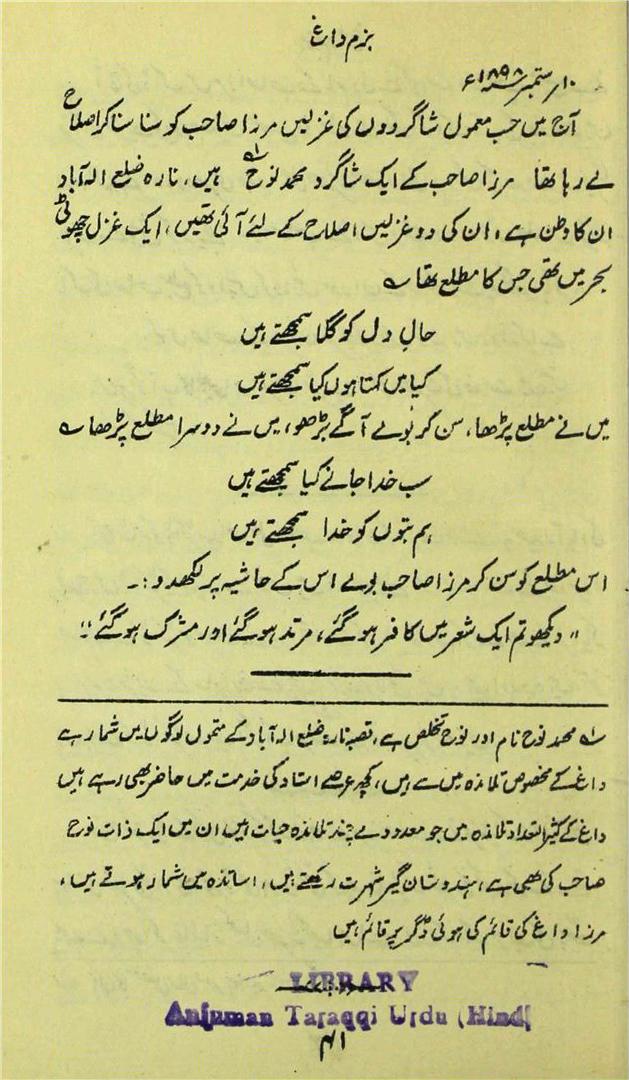 بزم داغ
۱۰ ستمبر ۱۸۹۸ء
آج میں حسب معمول شاگردوں کی غزلیں مرزا صاحب کو سنا سنا کر اصلاح
لے رہا تھا مرزا صاحب کے ایک شاگرد محمد نوح ہیں، نارہ ضلع الہ آباد
ان کا وطن ہے، ان کی دو غزلیں اصلاح کے لئے آئی تھیں، ایک غزل چھوٹی
بحر میں تھی جس کا مطلع تھا ؎
حالِ دل کو گلا سمجھتے ہیں
کیا میں کہتا ہوں کیا سمجھتے ہیں
میں نے مطلع پڑھا، سن کر بولے آگے بڑھو، میں نے دوسرا مطلع پڑھا ؎
سب خدا جانے کیا سمجھتے ہیں
ہم بتوں کو خدا سمجھتے ہیں
اس مطلع کو سن کر مرزا صاحب بولے اس کے حاشیہ پر لکھدو :۔
"دیکھو تم ایک شعر میں کافر ہو گئے، مرتد ہو گئے اور مشرک ہو گئے"
لہ محمد نوح نام اور نوح تخلص ہے، قصبہ نارہ ضلع الہ آباد کے متمول لوگوں میں شمار ہے
داغ کے مخصوص تلامذہ میں سے ہیں، کچھ عرصے استاد کی خدمت میں حاضر بھی رہے ہیں
داغ کے کثیر التعداد تلامذہ میں جو معدودے چند تلامذہ حیات ہیں ان میں ایک ذات نوح
صاحب کی بھی ہے، ہندوستان گیر شہرت رکھتے ہیں، اساتذہ میں شمار ہوتے ہیں،
مرزا داغ کی قائم کی ہوئی ڈگر پر قائم ہیں
LIBRARY
Anjuman Taraqqi Urdu (Hind)
۴۱